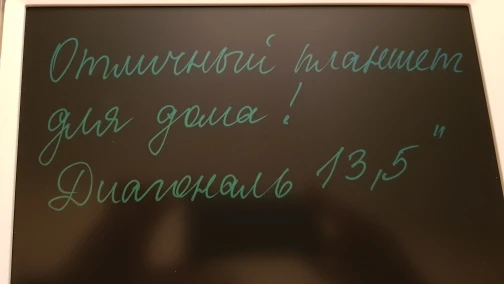 Отличный планшет
для дома!
Диагональ 13,5"